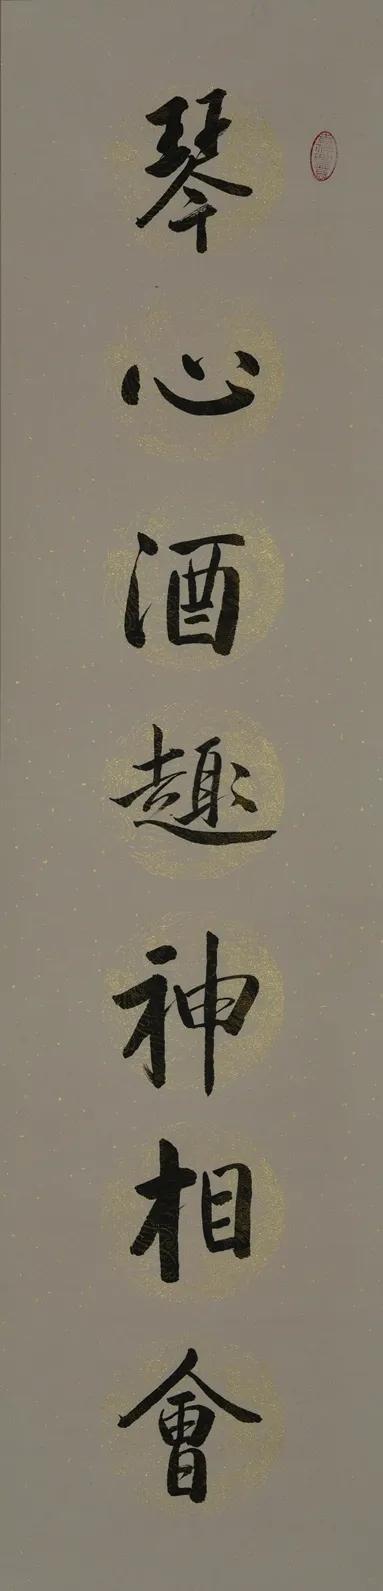 琴心酒趣神相會